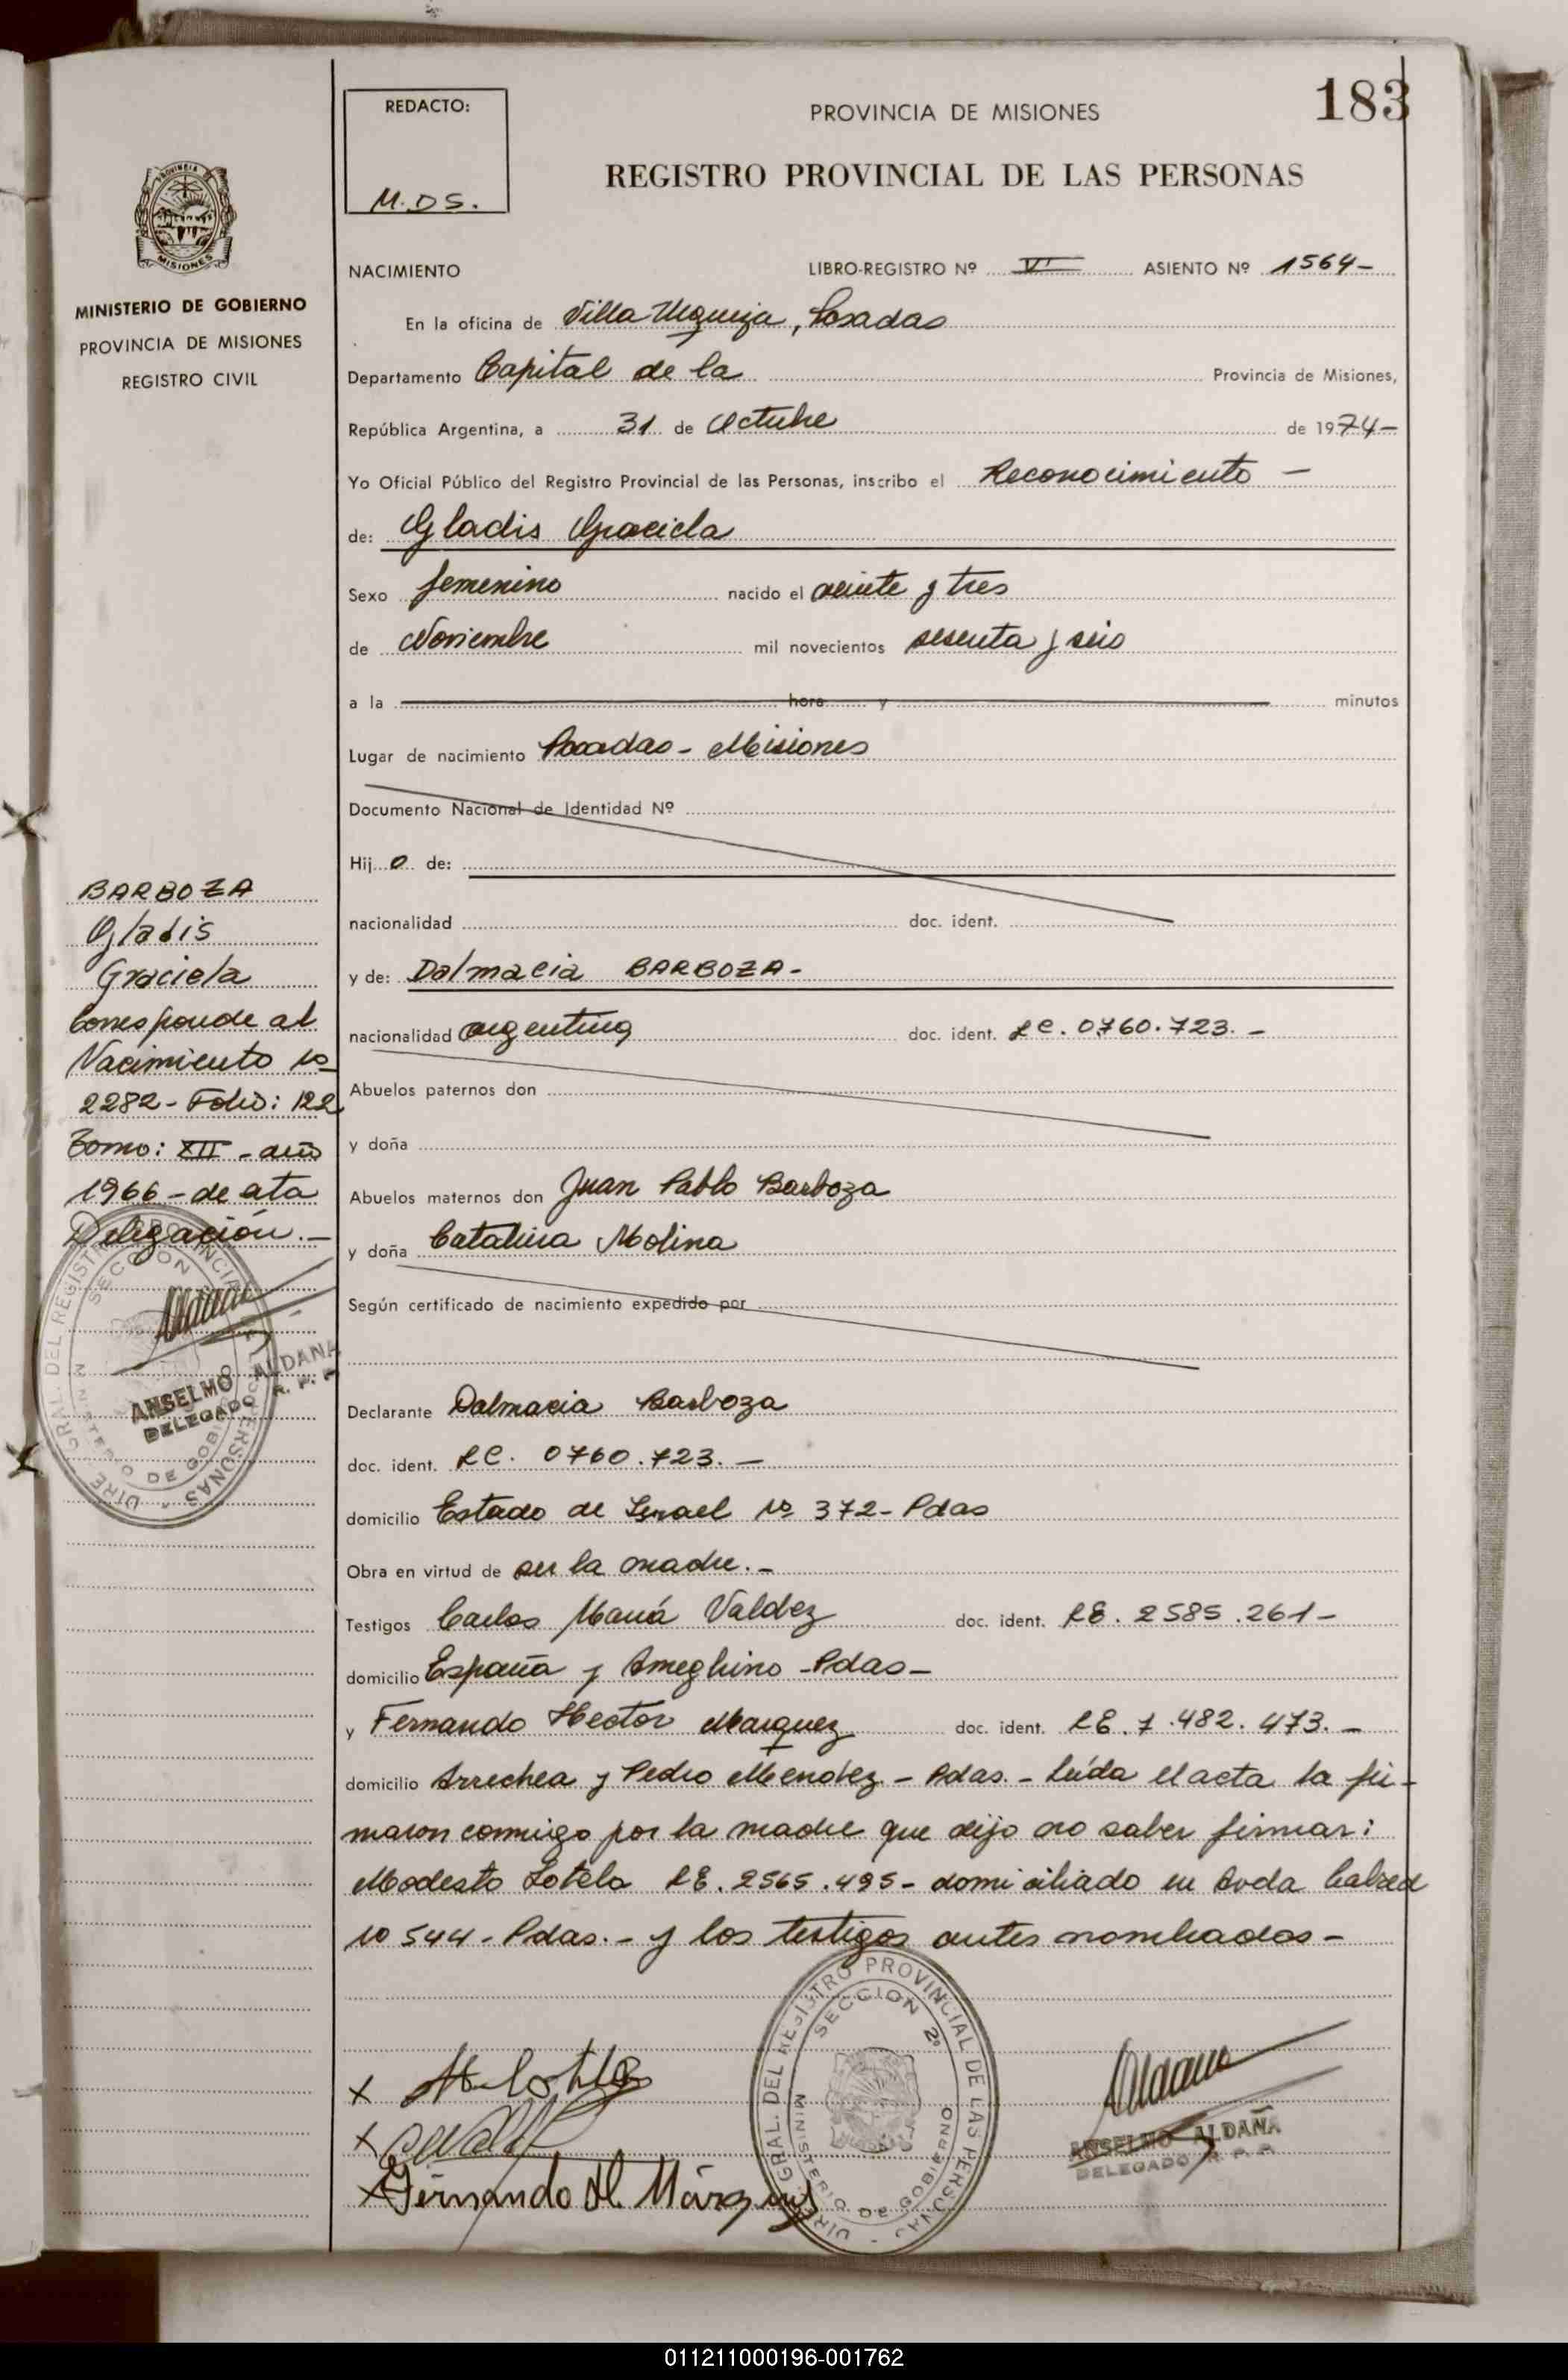 183
REDACTO:
M.DS.
PROVINCIA DE MISIONES
REGISTRO PROVINCIAL DE LAS PERSONAS
MISIONES
MINISTERIO DE GOBIERNO
PROVINCIA DE MISIONES
REGISTRO CIVIL
BARBOZA
Gladis
Graciela
Corresponde al
Nacimiento Nº
2282 - Folio: 122
Tomo: XII - año
1966 - de ata
Delegación.-
ANSELMO ALDAÑA
DELEGADO R. P. P.
NACIMIENTO LIBRO-REGISTRO Nº VI ASIENTO Nº 1564-
En la oficina de Villa Urquiza, Posadas
Departamento Capital de la Provincia de Misiones,
República Argentina, a 31 de Octubre de 1974-
Yo Oficial Público del Registro Provincial de las Personas, inscribo el Reconocimiento -
de: Gladis Graciela
Sexo femenino nacido el veinte y tres
de Noviembre mil novecientos sesenta y seis
a la hora y minutos
Lugar de nacimiento Posadas - Misiones
Documento Nacional de Identidad Nº
Hij o de:
nacionalidad doc. ident.
y de: Dalmacia BARBOZA-
nacionalidad argentina doc. ident. LC. 0760.723. -
Abuelos paternos don
y doña
Abuelos maternos don Juan Pablo Barboza
y doña Catalina Molina
Según certificado de nacimiento expedido por
Declarante Dalmacia Barboza
doc. ident. LC. 0760.723. -
domicilio Estado de Israel Nº 372 - Pdas
Obra en virtud de ser la madre. -
Testigos Carlos María Valdez doc. ident. LE. 2585.261-
domicilio España y Ameghino - Pdas -
y Fernando Hector Marquez doc. ident. LE. 7.482.473. -
domicilio Arrechea y Pedro Mendez - Pdas. - Leída el acta la fir-
maron conmigo por la madre que dijo no saber firmar:
Modesto Lotela LE. 2565.495 - domiciliado en Avda Cabred
Nº 544 - Pdas. - y los testigos antes nombrados -
DIRE. GRAL. DEL REGISTRO PROVINCIAL DE LAS PERSONAS
SECCION 2ª
MINISTERIO DE GOBIERNO
Fernando H. Márquez
ANSELMO ALDAÑA
DELEGADO R. P. P.
011211000196-001762